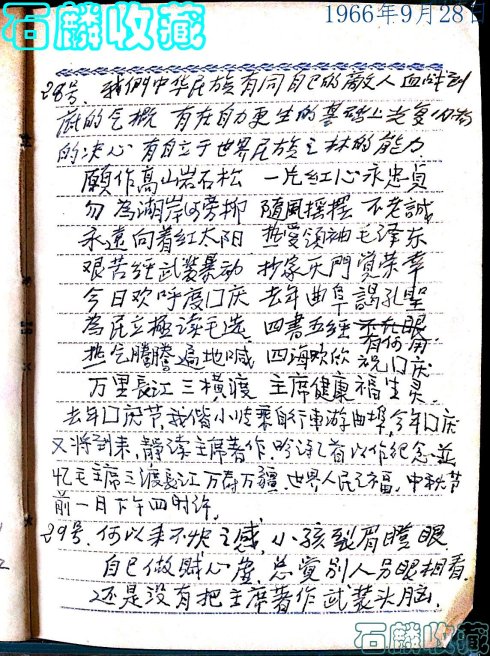 石麟收藏
1966年9月28日
28号. 我們中华民族有同自己的敵人血战到
底的气概 有在自力更生的基礎上光复旧物
的决心 有自立于世界民族之林的能力
願作高山岩石松 一片紅心永忠貞
勿為湖岸河旁柳 随風摇擺不老誠
永遠向着红太阳 热爱领袖毛泽东
艰苦经武装暴动 抄家灭門覚荣幸
今日欢呼度囗庆 去年曲阜謁孔聖
為民立極读毛选 四書五经有何用
热气騰騰遍地喊 四海欢欣祝囗庆
万里長江三横渡 主席健康福生灵.
去年囗庆节,我偕小 乘自行車游曲埠,今年囗庆
又将到来,静读主席著作,吟诗乙首以作纪念.並
忆毛主席三渡長江万寿万疆.世界人民之福.中秋节
前一日下午四时许.
29号.何以来不快之感,小孩裂眉瞪眼
自己做贼心虚 总覚别人另眼相看.
还是没有把主席著作武装头脑.
石麟收藏